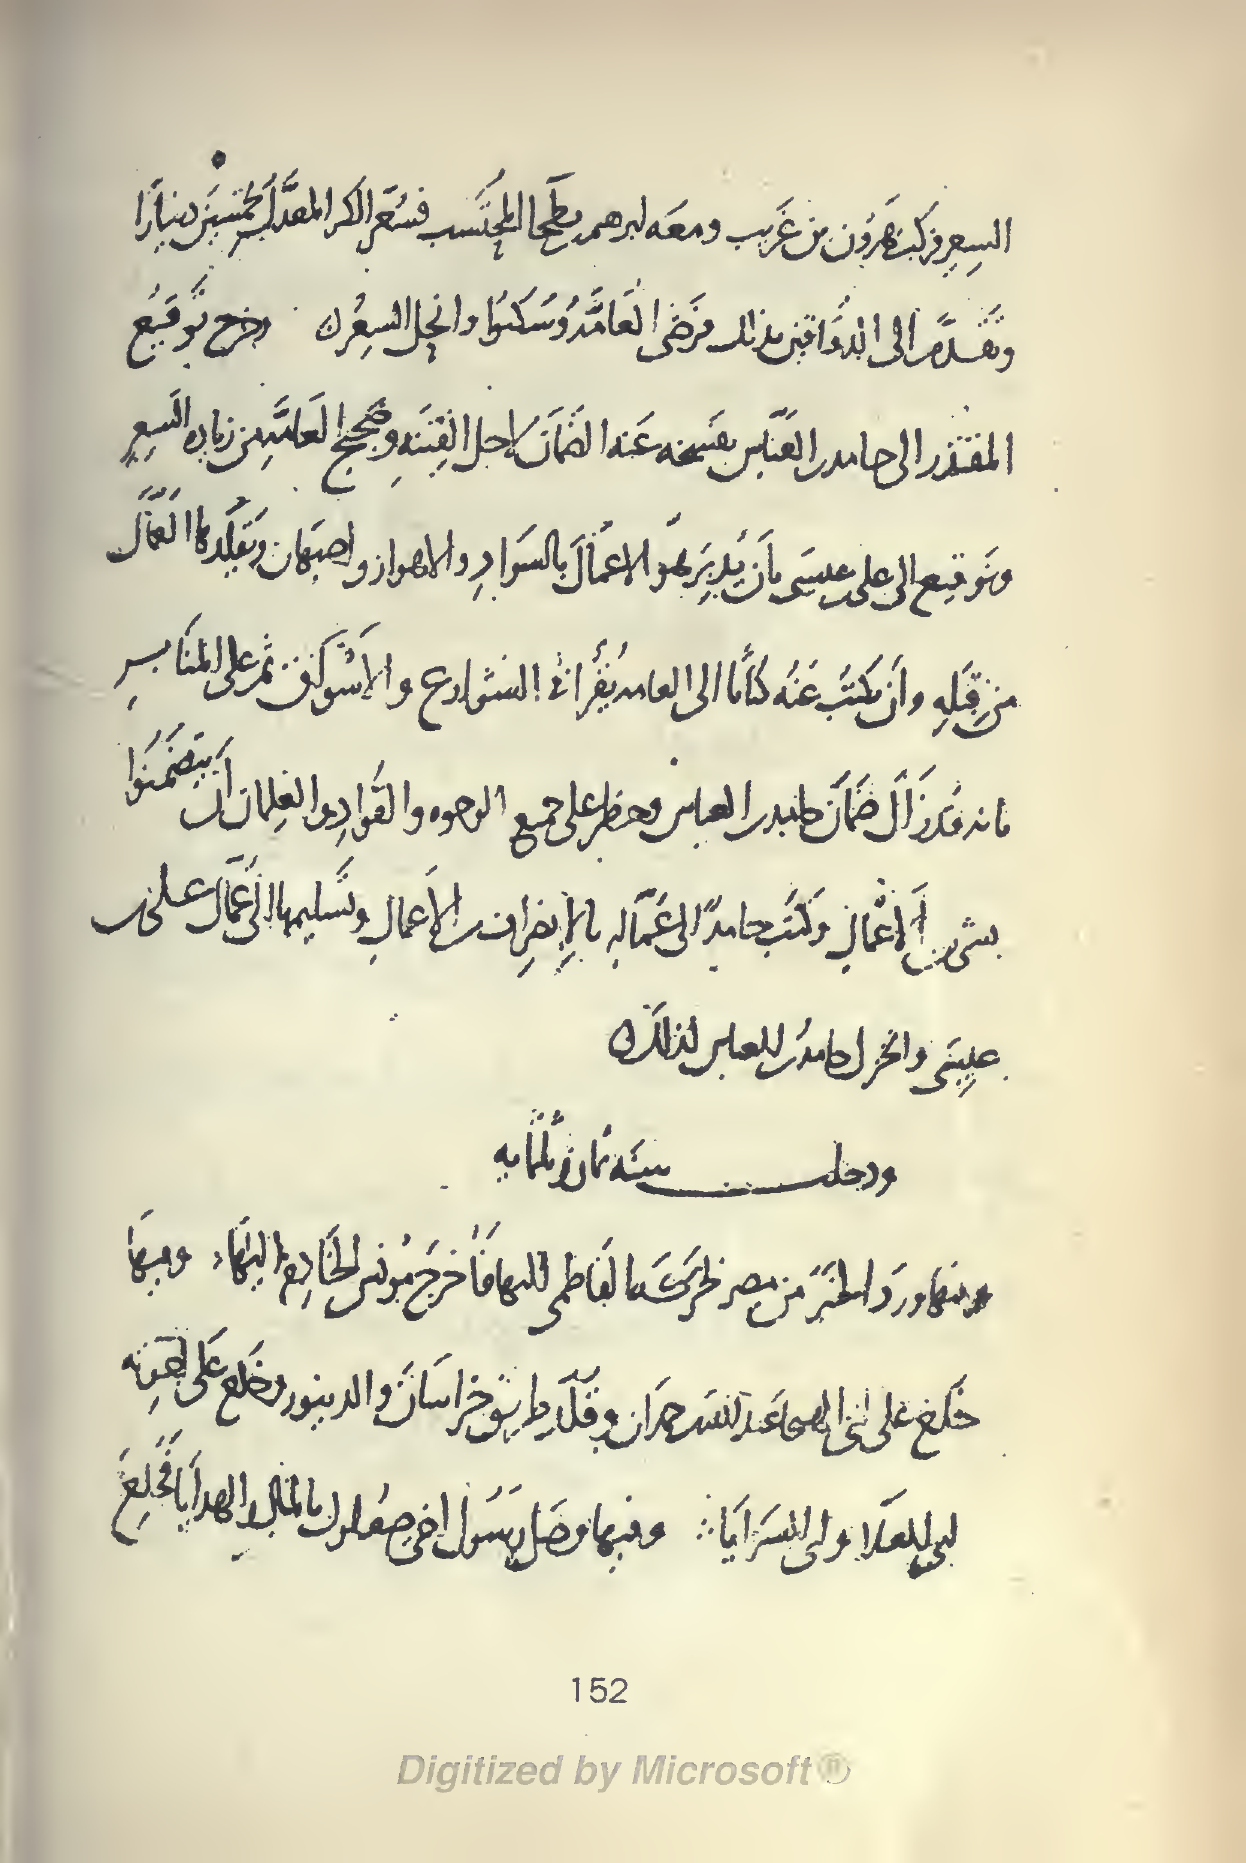 السعر فركب هرون بن غريب ومعه ابرهيم بن بطحا المحتسب فسعر الكر المعدل بخمسين دينارًا
وتقدم الى الدقاقين بذلك فرضى العامة وسكنوا وانحل السعر ه وخرج توقيع
المقتدر الى حامد بن العباس بفسخه عنه الضمان لاجل الفتنه وضجيج العامه من زياده السعر
وتوقيع الى على بن عيسى بأن يدبر هو الاعمال بالسواد والاهواز واصبهان وتقليدها العمال
من قبله وان يكتب عنه كتابًا الى العامه يقرا فى الشوارع والاسواق ثم على المنابر
بانه قد زال ضمان حامد بن العباس وحظر على جميع الوجوه والقواد والغلمان ان يتضمنوا
بشى من الاعمال وكتب حامد الى عماله بالانصراف من الاعمال وتسليمها الى عمال على بن
عيسى وانخزل حامد بن العباس لذلك ه
ودخلت سنه ثمان وثلثمايه
وفيها ورد الخبر من مصر بحركه الفاطمى اليها فأخرج مونس الخادم اليها وفيها
خلع على ابى الهيجا عبد الله بن حمدان وقلد طريق خراسان والدينور وخلع على اخوته
ابى العلا وابى السرايا ∴ وفيها وصل رسول اخى صعلوك بالمال والهدايا فخلع
152
Digitized by Microsoft ®